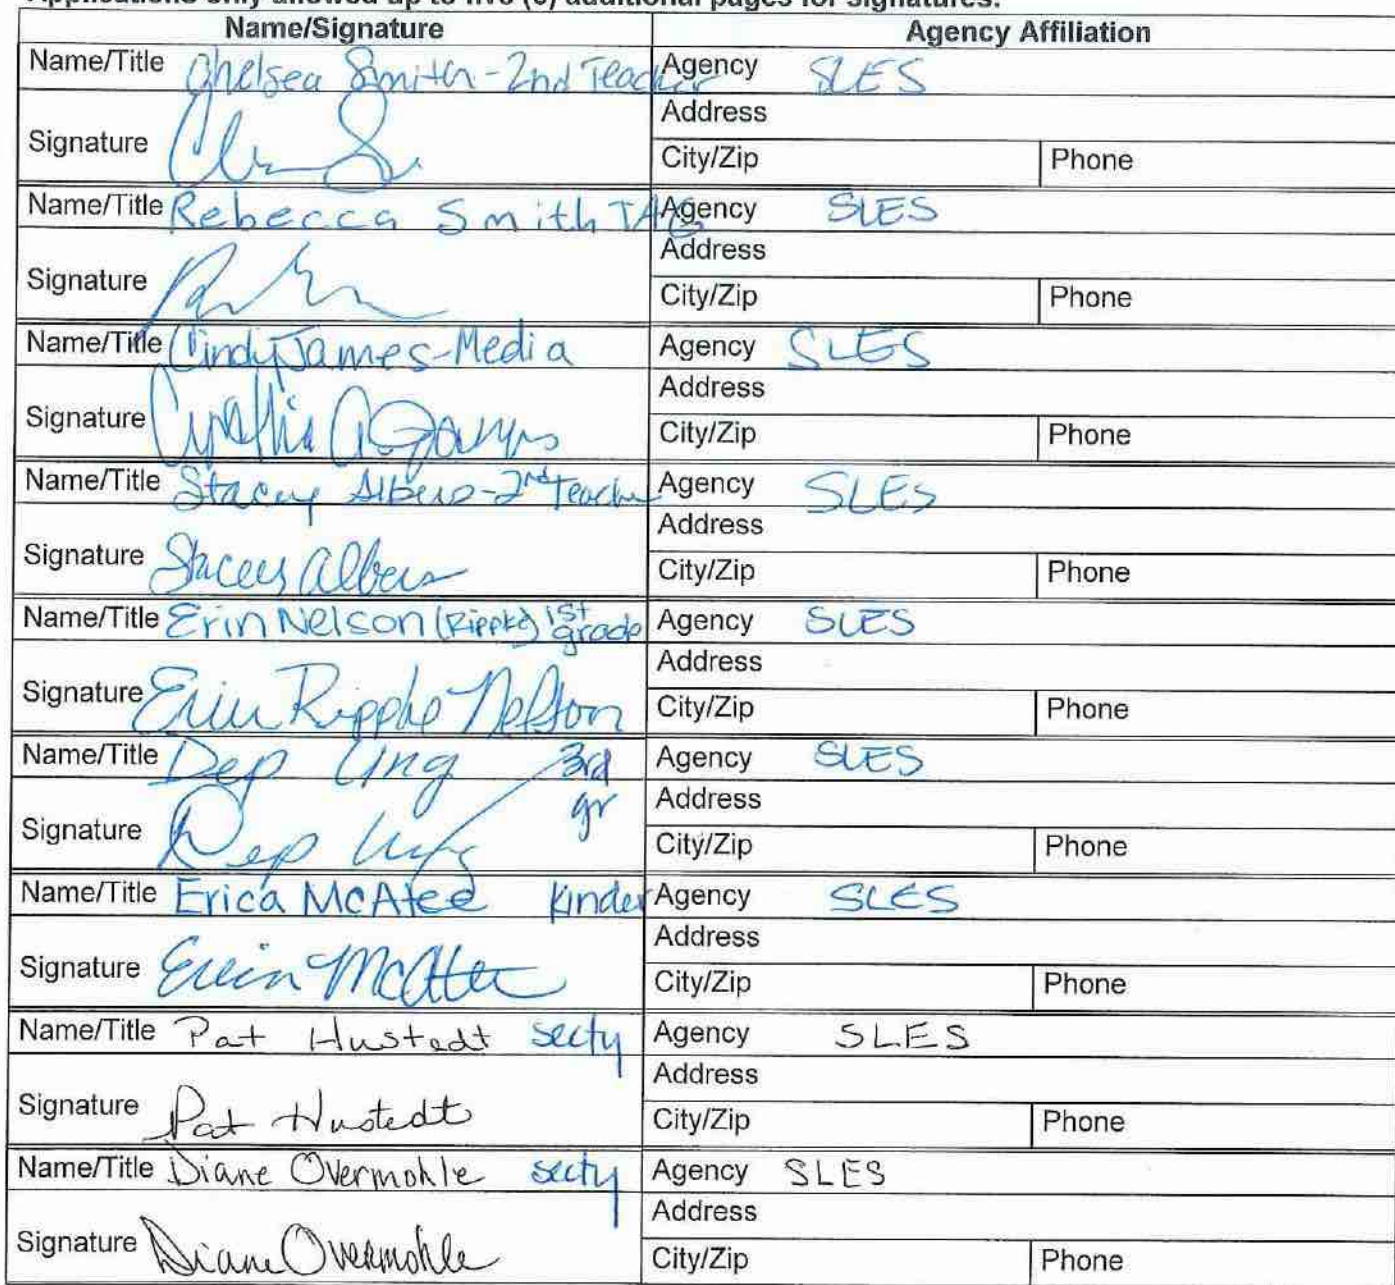 Applications only allowed up to five (5) additional pages for signatures.
Name/Signature Agency Affiliation
Name/Title Chelsea Smith - 2nd Teacher Agency SLES
Address
Signature
City/Zip Phone
Name/Title Rebecca Smith TAG Agency SLES
Address
Signature
City/Zip Phone
Name/Title Cindy James - Media Agency SLES
Address
Signature Cynthia A James
City/Zip Phone
Name/Title Stacey Albers - 2nd Teacher Agency SLES
Address
Signature Stacey Albers
City/Zip Phone
Name/Title Erin Nelson (Rippke) 1st grade Agency SLES
Address
Signature Erin Rippke Nelson
City/Zip Phone
Name/Title Dep Ung 3rd gr Agency SLES
Address
Signature Dep Ung
City/Zip Phone
Name/Title Erica McAtee kinder Agency SLES
Address
Signature Erica McAtee
City/Zip Phone
Name/Title Pat Hustedt secty Agency SLES
Address
Signature Pat Hustedt
City/Zip Phone
Name/Title Diane Overmohle secty Agency SLES
Address
Signature Diane Overmohle
City/Zip Phone